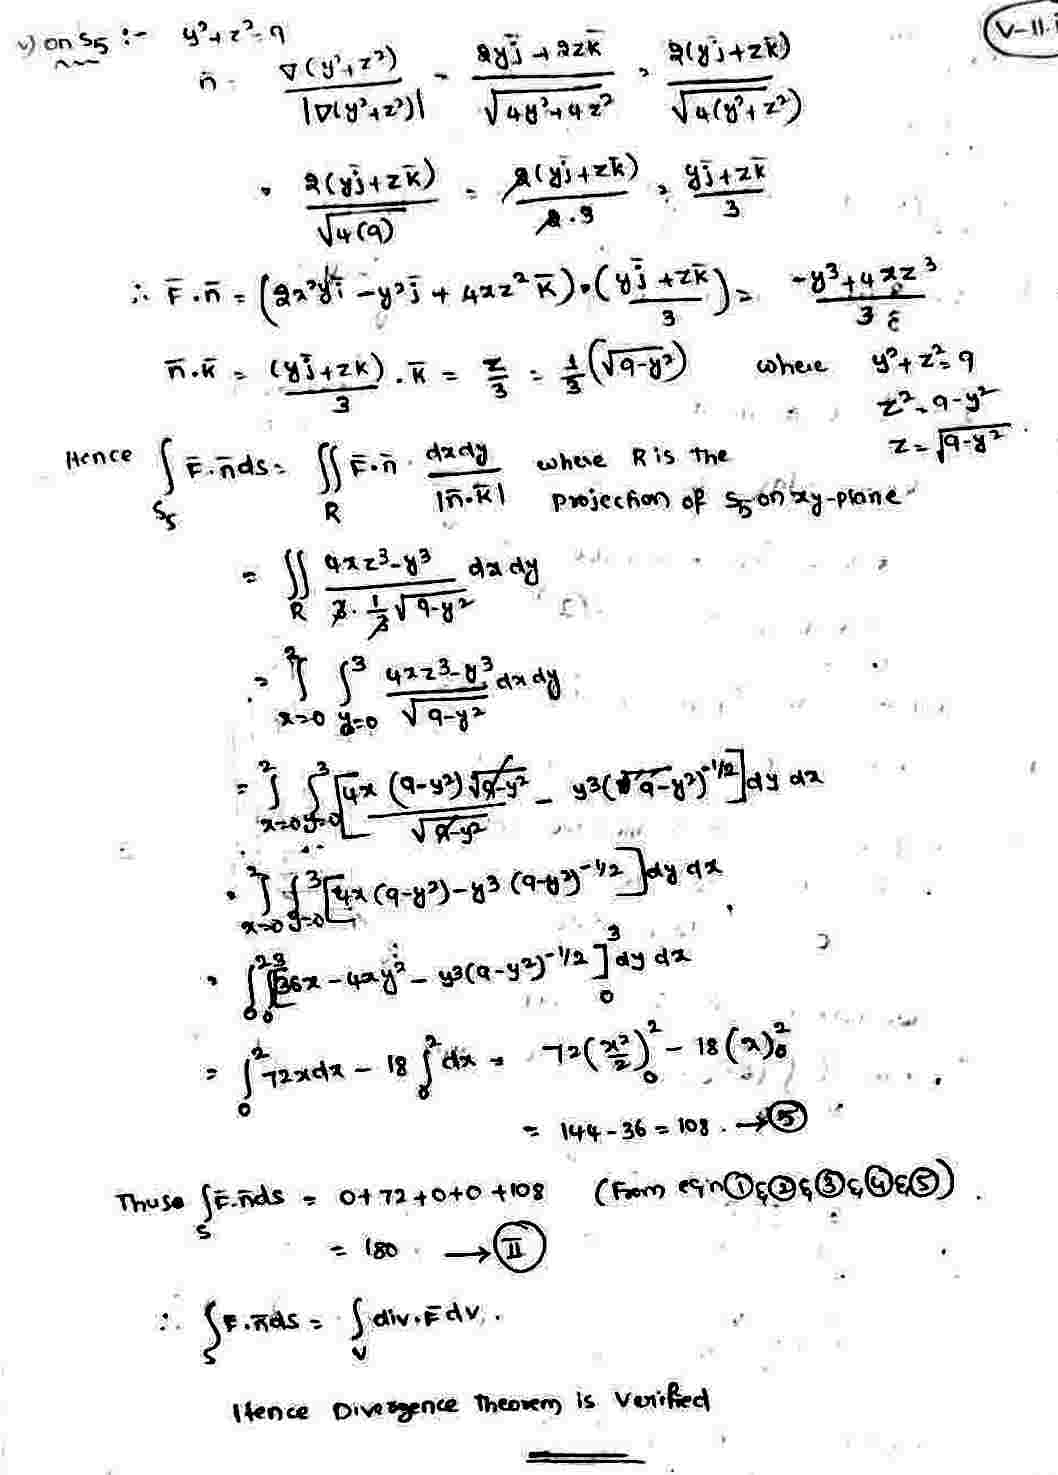 V-11.
v) on S₅ :- y²+z²=9
n̄ = ∇(y²+z²)/|∇(y²+z²)| = (2yj̄+2zk̄)/√(4y²+4z²) = 2(yj̄+zk̄)/√(4(y²+z²))
= 2(yj̄+zk̄)/√(4(9)) = 2(yj̄+zk̄)/(2.3) = (yj̄+zk̄)/3
∴ F̄.n̄ = (2x²yī - y²j̄ + 4xz²k̄).((yj̄+zk̄)/3) = (-y³+4xz³)/3
n̄.k̄ = ((yj̄+zk)/3).k̄ = z/3 = 1/3(√(9-y²)) where y²+z²=9
z²=9-y²
z=√(9-y²)
Hence ∫_S₅ F̄.n̄ds = ∬_R F̄.n̄ dxdy/|n̄.k̄| where R is the
projection of S₅ on xy-plane
= ∬_R (4xz³-y³)/(3.(1/3)√(9-y²)) dxdy
= ∫_{x=0}^{2} ∫_{y=0}^{3} (4xz³-y³)/√(9-y²) dxdy
= ∫_{x=0}^{2} ∫_{y=0}^{3} [4x(9-y²)√(9-y²)/√(9-y²) - y³(9-y²)^{-1/2}] dy dx
= ∫_{x=0}^{2} ∫_{y=0}^{3} [4x(9-y²)-y³(9-y²)^{-1/2}] dy dx
= ∫_0^2 ∫_0^3 [36x-4xy²-y³(9-y²)^{-1/2}]_0^3 dy dx
= ∫_0^2 72xdx - 18∫_0^2 dx = 72(x²/2)_0^2 - 18(x)_0^2
= 144-36=108. →⑤
Thuse ∫_S F̄.n̄ds = 0+72+0+0+108 (From eqn①&②&③&④&⑤).
= 180 →Ⅱ
∴ ∫_S F.n̄ds = ∫_V div.F̄dv.
Hence Divergence Theorem is Verified